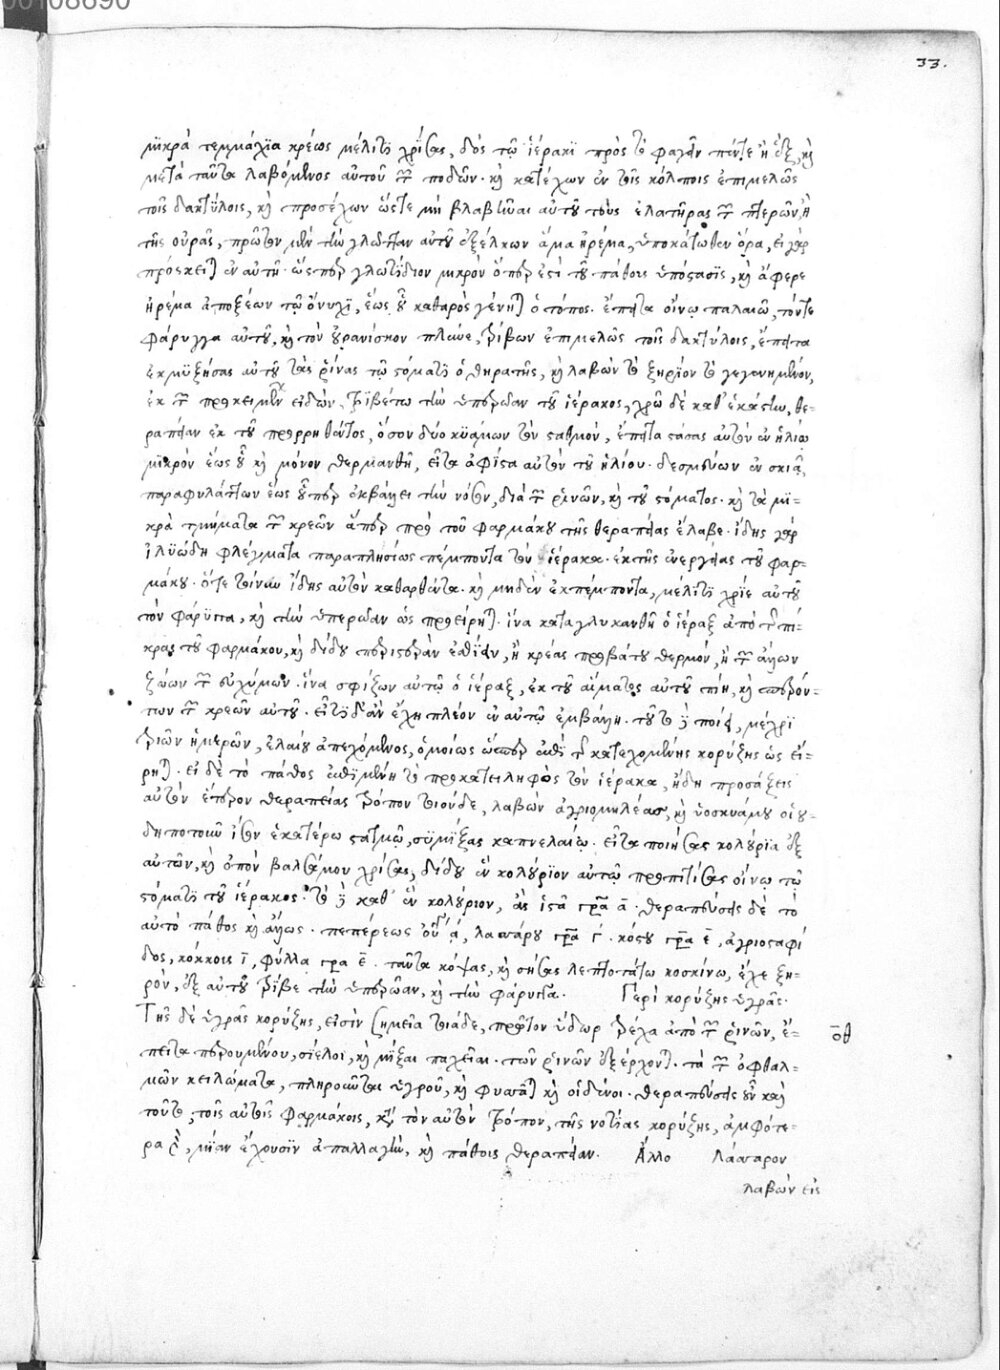 00108690
33.
μικρὰ τεμμάχια κρέως μέλιτι χρίσας, δὸς τῷ ἱέρακι πρὸς τὸ φαγεῖν πέντε ἢ ἓξ, καὶ
μετὰ ταῦτα λαβόμενος αὐτοῦ τῶν ποδῶν. καὶ κατέχων ἐν τοῖς κόλποις ἐπιμελῶς
τοῖς δακτύλοις, καὶ προσέχων ὥστε μὴ βλαβῆναι αὐτοῦ τοὺς ἐλατῆρας τῶν πτερῶν, ἢ
τῆς οὐρᾶς, πρῶτον μὲν τὴν γλῶτταν αὐτοῦ ἐξέλκων ἅμα ἠρέμα, ὑποκάτωθεν ὅρα, εἰ γὰρ
πρόσκειται ἐν αὐτῇ. ὥσπερ γλωτίδιον μικρὸν ὅπερ ἐστὶ τοῦ πάθους ὑπόστασις, καὶ ἀφερε
ἠρέμα ἀποξέων τῷ ὄνυχι, ἕως οὗ καθαρὸς γένηται ὁ τόπος. ἔπειτα οἴνῳ παλαιῷ, τόντε
φάρυγγα αὐτοῦ, καὶ τὸν οὐρανίσκον πλῦνε, τρίβων ἐπιμελῶς τοῖς δακτύλοις, ἔπειτα
ἐκμυξήσας αὐτοῦ τὰς ῥῖνας τῷ στόματι ὁ θηρατὴς, καὶ λαβὼν τὸ ξηρίον τὸ γεγενημένον,
ἐκ τῶν προκειμένων εἰδῶν, τριβέτω τὴν ὑπερώαν τοῦ ἱέρακος, χρῶ δὲ καθ' ἑκάστην, θε-
ραπείαν ἐκ τοῦ προρρηθέντος, ὅσον δύο κυάμων τὸν σταθμὸν, ἔπειτα στάσας αὐτὸν ἐν ἡλίῳ
μικρὸν ἕως οὗ καὶ μόνον θερμανθῇ, εἶτα ἀφίστα αὐτὸν τοῦ ἡλίου. δεσμεύων ἐν σκιᾷ,
παραφυλάττων ἕως οὗπερ ἐκβάλῃ τὴν νόσον, διὰ τῶν ῥινῶν, καὶ τοῦ στόματος. καὶ τὰ μι-
κρὰ τμήματα τῶν κρεῶν ἅπερ πρὸ τοῦ φαρμάκου τῆς θεραπείας ἔλαβε. ἴδῃς γὰρ
ἰλυώδη φλέγματα παραπλησίως πέμποντα τὸν ἱέρακα. ἐκ τῆς ἐνεργείας τοῦ φαρ-
μάκου. ὅτε τοίνυν ἴδῃς αὐτὸν καθαρθέντα. καὶ μηδὲν ἐκπέμποντα, μέλιτι χρῖε αὐτοῦ
τὸν φάρυγγα, καὶ τὴν ὑπερώαν ὡς προείρηται. ἵνα καταγλυκανθῇ ὁ ἱέραξ ἀπὸ τῆς πι-
κρας τοῦ φαρμάκου, καὶ δίδου περιστερὰν ἐσθίειν, ἢ κρέας προβάτου θερμὸν, ἢ τῶν ἄλλων
ζώων τῶν εὐχύμων. ἵνα σφίζων αὐτῷ ὁ ἱέραξ, ἐκ τοῦ αἵματος αὐτοῦ πίῃ, καὶ
των τῶν κρεῶν αὐτοῦ. εἴ τι δ' ἂν ἔχῃ πλέον ἐν αὐτῷ ἐμβάλῃ. τοῦτο δὲ ποίει, μέχρι
τριῶν ἡμερῶν, ἐλαίου ἀπεχόμενος, ὁμοίως ὥσπερ ἐπὶ τῆς κατεχομένης κορύζης ὡς εἴ-
ρηται. εἰ δὲ τὸ πάθος ἐπιμένῃ τὸ προκατειληφὼς τὸν ἱέρακα, ἤδη προσάξεις
αὐτὸν ἕτερον θεραπείας τρόπον τοιόνδε, λαβὼν ἀγριομηλέας, καὶ ὑοσκυάμου οἱου-
δηποτοῦν ἴσον ἑκατέρω σταθμῷ, συμμίξας καπνελαίῳ. εἶτα ποιήσας κολύρια ἐξ
αὐτῶν, καὶ ὀπὸν βαλσάμου χρίσας, δίδου ἓν κολύριον αὐτῷ προποτίσας οἴνῳ τῷ
στόματι τοῦ ἱέρακος. τὸ δὲ καθ' ἓν κολύριον, ἂς ἱστᾷ γρα α. θεραπεύσεις δὲ τὸ
αὐτὸ πάθος καὶ ἄλλως. πεπέρεως οὐγ α, λασάρου γρα γ. κόστου γρα ε, ἀγριοσταφί
δος, κόκκους ι, φύλλα γρα ε. ταῦτα κόψας, καὶ σήσας λεπτοτάτῳ κοσκίνῳ, ἔχε ξη-
ρὸν, ἐξ αὐτοῦ τρῖβε τὴν ὑπερώαν, καὶ τὴν φάρυγγα. Περὶ κορύζης ὑγρᾶς.
Τῆς δὲ ὑγρᾶς κορύζης, εἰσὶν σημεῖα τοιάδε, πρῶτον ὕδωρ τρέχει ἀπὸ τῶν ῥινῶν, ἔ-
οθ
πειτα προϊουμένου, σίελοι, καὶ μύξαι παχεῖαι. τῶν ῥινῶν ἐξέρχονται. τὰ τῶν ὀφθαλ-
μῶν κειλώματα, πληροῦνται ὑγροῦ, καὶ φυσᾶται καὶ οἰδαίνει. θεραπεύσεις οὖν καὶ
τοῦτο, τοῖς αὐτοῖς φαρμάκοις, κατὰ τὸν αὐτὸν τρόπον, τῆς νοτίας κορύζης, ἀμφότε-
ρα γὰρ, μίαν ἔχουσιν ἀπαλλαγὴν, καὶ πάθους θεραπείαν. Ἄλλο Λάσαρον
λαβὼν εἰς